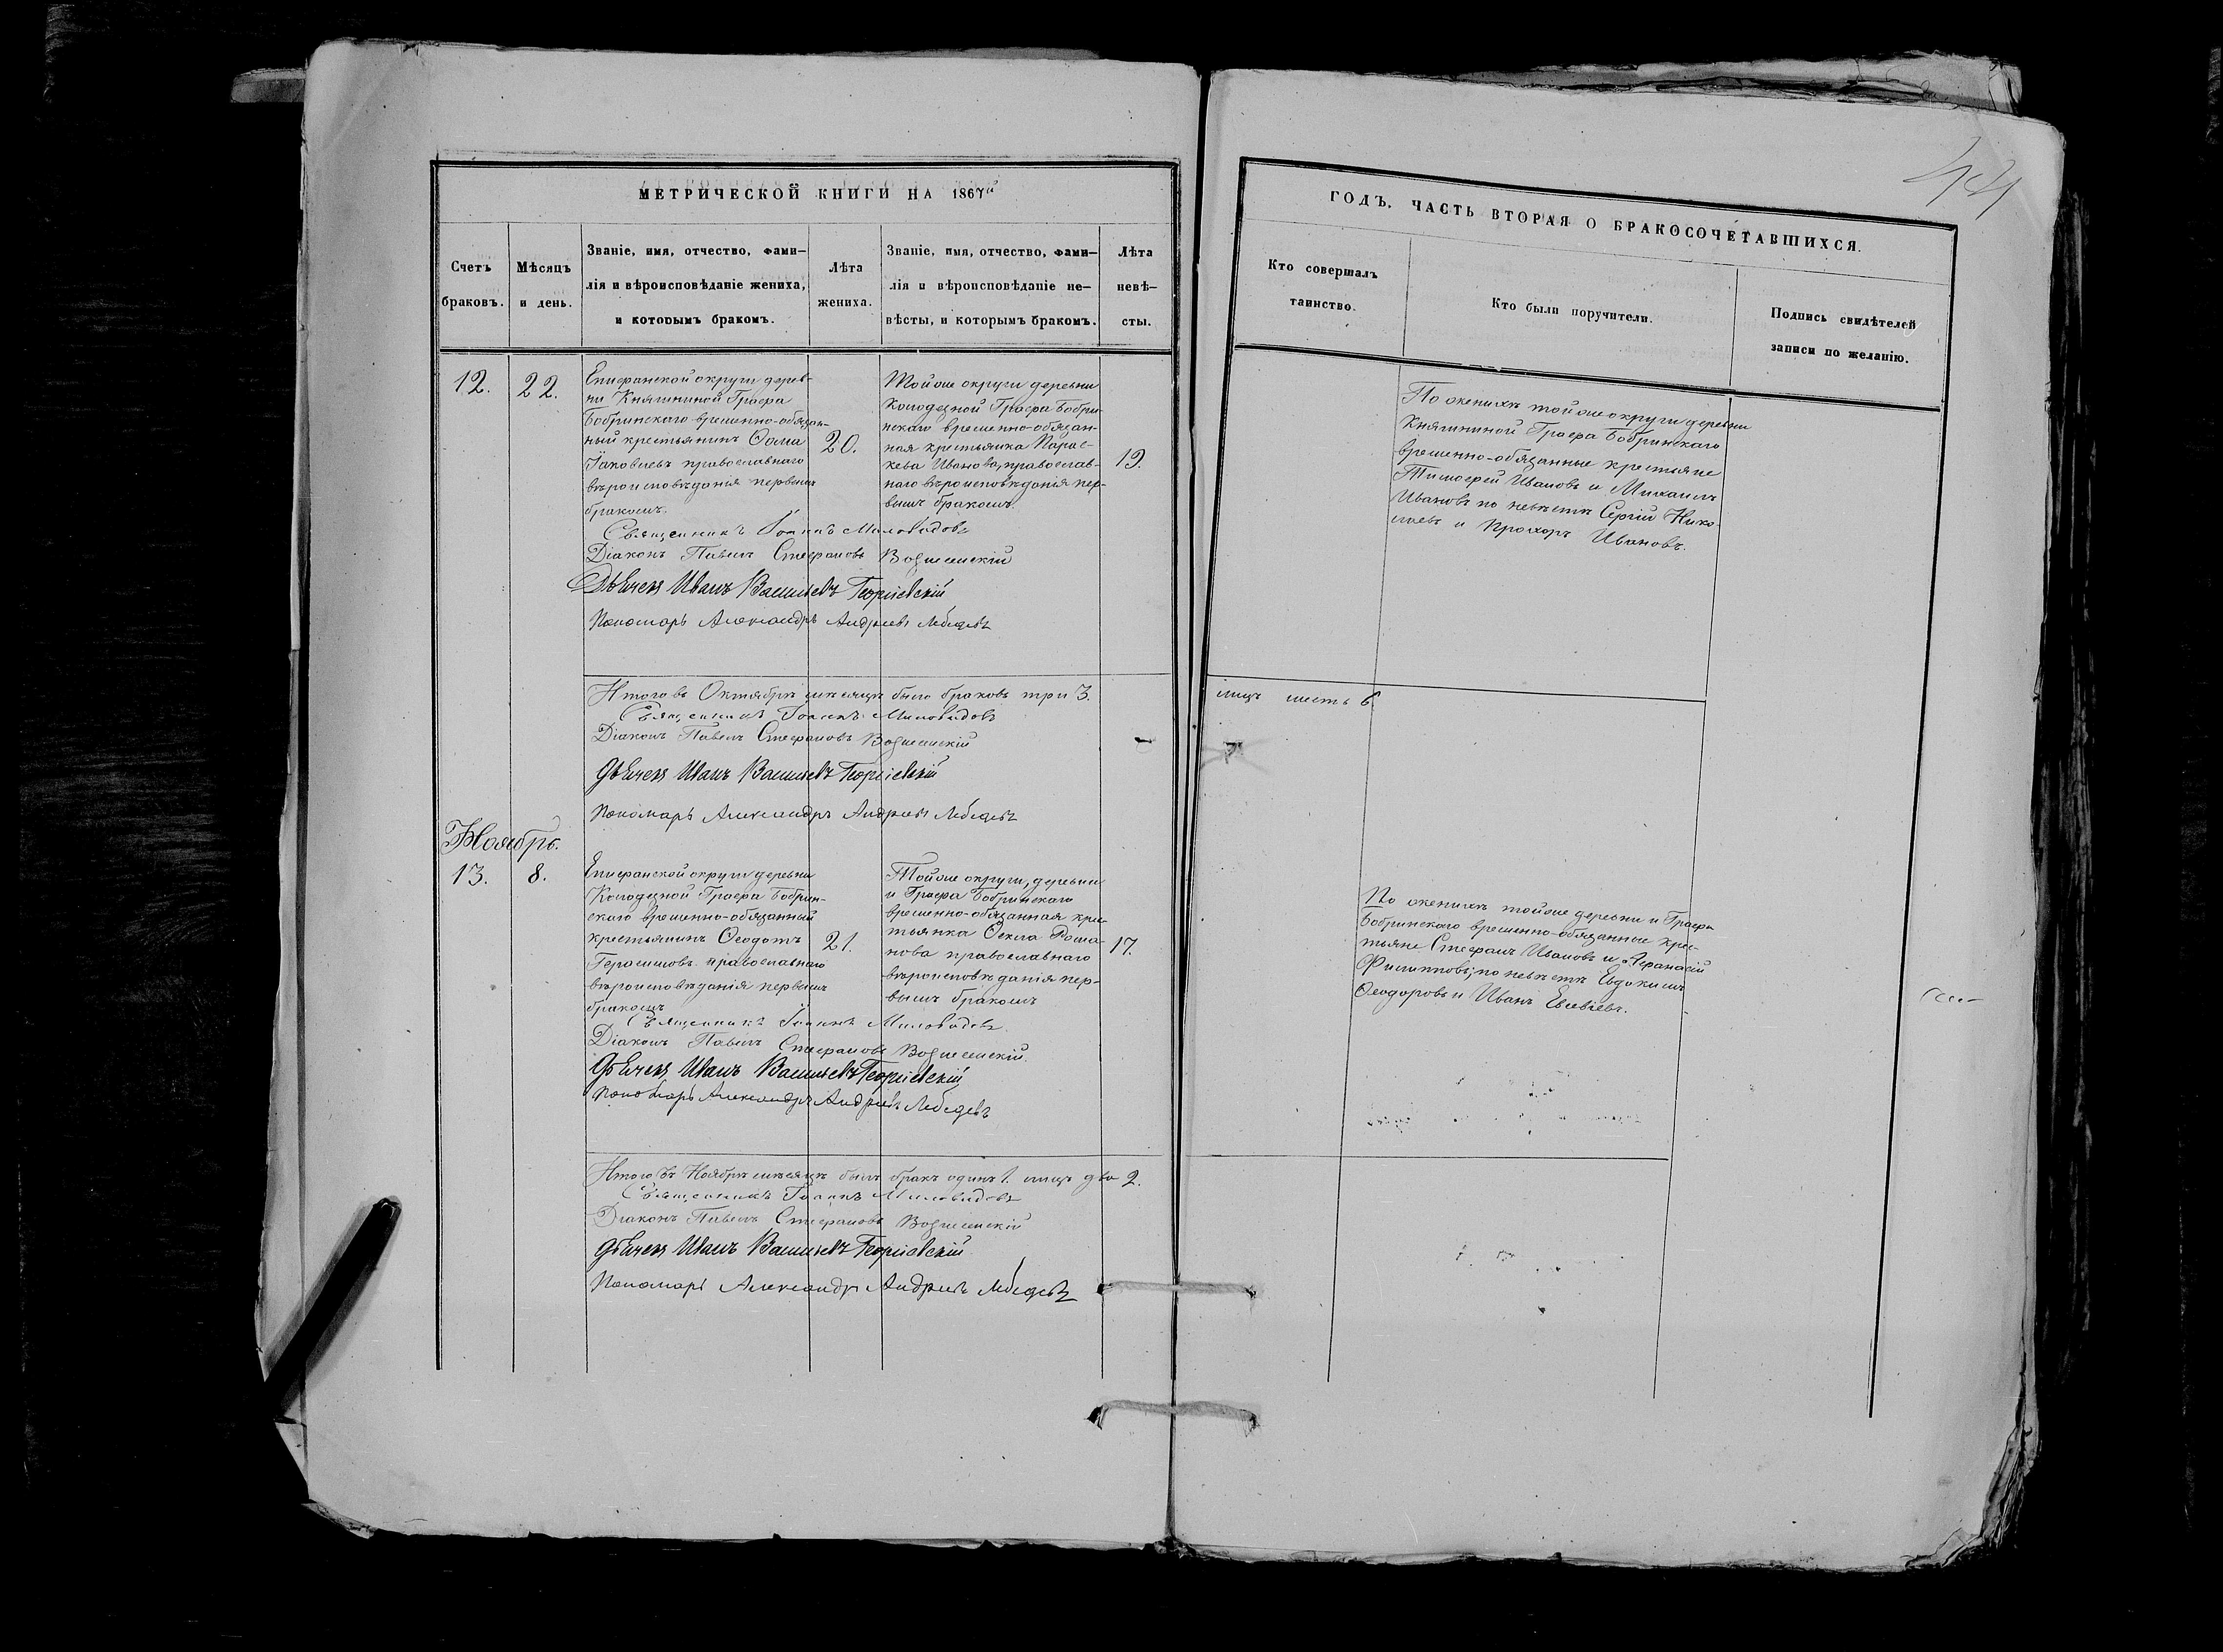 МЕТРИЧЕСКОЙ КНИГИ НА 1867й
Счетъ
браковъ.
Мѣсяцъ
и день.
Званіе, имя, отчество, фами-
лія и вѣроисповѣданіе жениха,
и которымъ бракомъ.
Лѣта
жениха.
Званіе, имя, отчество, фами-
лія и вѣроисповѣданіе не-
вѣсты, и которымъ бракомъ.
Лѣта
невѣ-
сты.
12.
22.
Епифанской округи дерев-
ни Княгининой Графа
Бобринскаго временно-обязан-
ный крестьянинъ Ѳома
Іаковлевъ православнаго
вѣроисповѣданія первымъ
бракомъ.
20.
Тойже округи деревни
Колодезной Графа Бобри-
нскаго временно-обязан-
ная крестьянка Парас-
кева Иванова, православ-
наго вѣроисповѣданія пер-
вымъ бракомъ.
19.
Священникъ Іоаннъ Миловидовъ
Діаконъ Павелъ Стефановъ Вознесенскій
Дьячекъ Иванъ Васильевъ Георгіевскій
Пономарь Александръ Андреевъ Лебедевъ
Итого въ Октябрѣ мѣсяцѣ было браковъ три 3.
Священникъ Іоаннъ Миловидовъ
Діаконъ Павелъ Стефановъ Вознесенскій
Дьячекъ Иванъ Васильевъ Георгіевскій
Пономарь Александръ Андреевъ Лебедевъ
Ноябрь.
13.
8.
Епифанской округи деревни
Колодезной Графа Бобрин-
скаго временно-обязанный
крестьянинъ Ѳеодотъ
Герасимовъ православнаго
вѣроисповѣданія первымъ
бракомъ
21.
Тойже округи, деревни
и Графа Бобринскаго
временно-обязанная крес-
тьянка Ѳекла Рома-
нова православнаго
вѣроисповѣданія пер-
вымъ бракомъ
17.
Священникъ Іоаннъ Миловидовъ
Діаконъ Павелъ Стефановъ Вознесенскій.
Дьячекъ Иванъ Васильевъ Георгіевскій
Пономарь Александръ Андреевъ Лебедевъ
Итого въ Ноябрѣ мѣсяцѣ былъ бракъ одинъ 1. лицъ два 2.
Священникъ Іоаннъ Миловидовъ
Діаконъ Павелъ Стефановъ Вознесенскій
Дьячекъ Иванъ Васильевъ Георгіевскій
Пономарь Александръ Андреевъ Лебедевъ
ГОДЪ. ЧАСТЬ ВТОРАЯ О БРАКОСОЧЕТАВШИХСЯ.
Кто совершалъ
таинство.
Кто были поручители.
Подпись свидѣтелей
записи по желанію.
По женихѣ тойже округи деревни
Княгининой Графа Бобринскаго
временно-обязанные крестьяне
Тимофей Ивановъ и Михаилъ
Ивановъ по невѣстѣ Сергій Нико-
лаевъ и Прохоръ Ивановъ.
лицъ шесть 6
По женихѣ тойже деревни и Графа
Бобринскаго временно-обязанные крес-
тьяне Стефанъ Ивановъ и Афанасій
Филипповъ; по невѣстѣ Евдокимъ
Ѳеодоровъ и Иванъ Евсевіевъ.